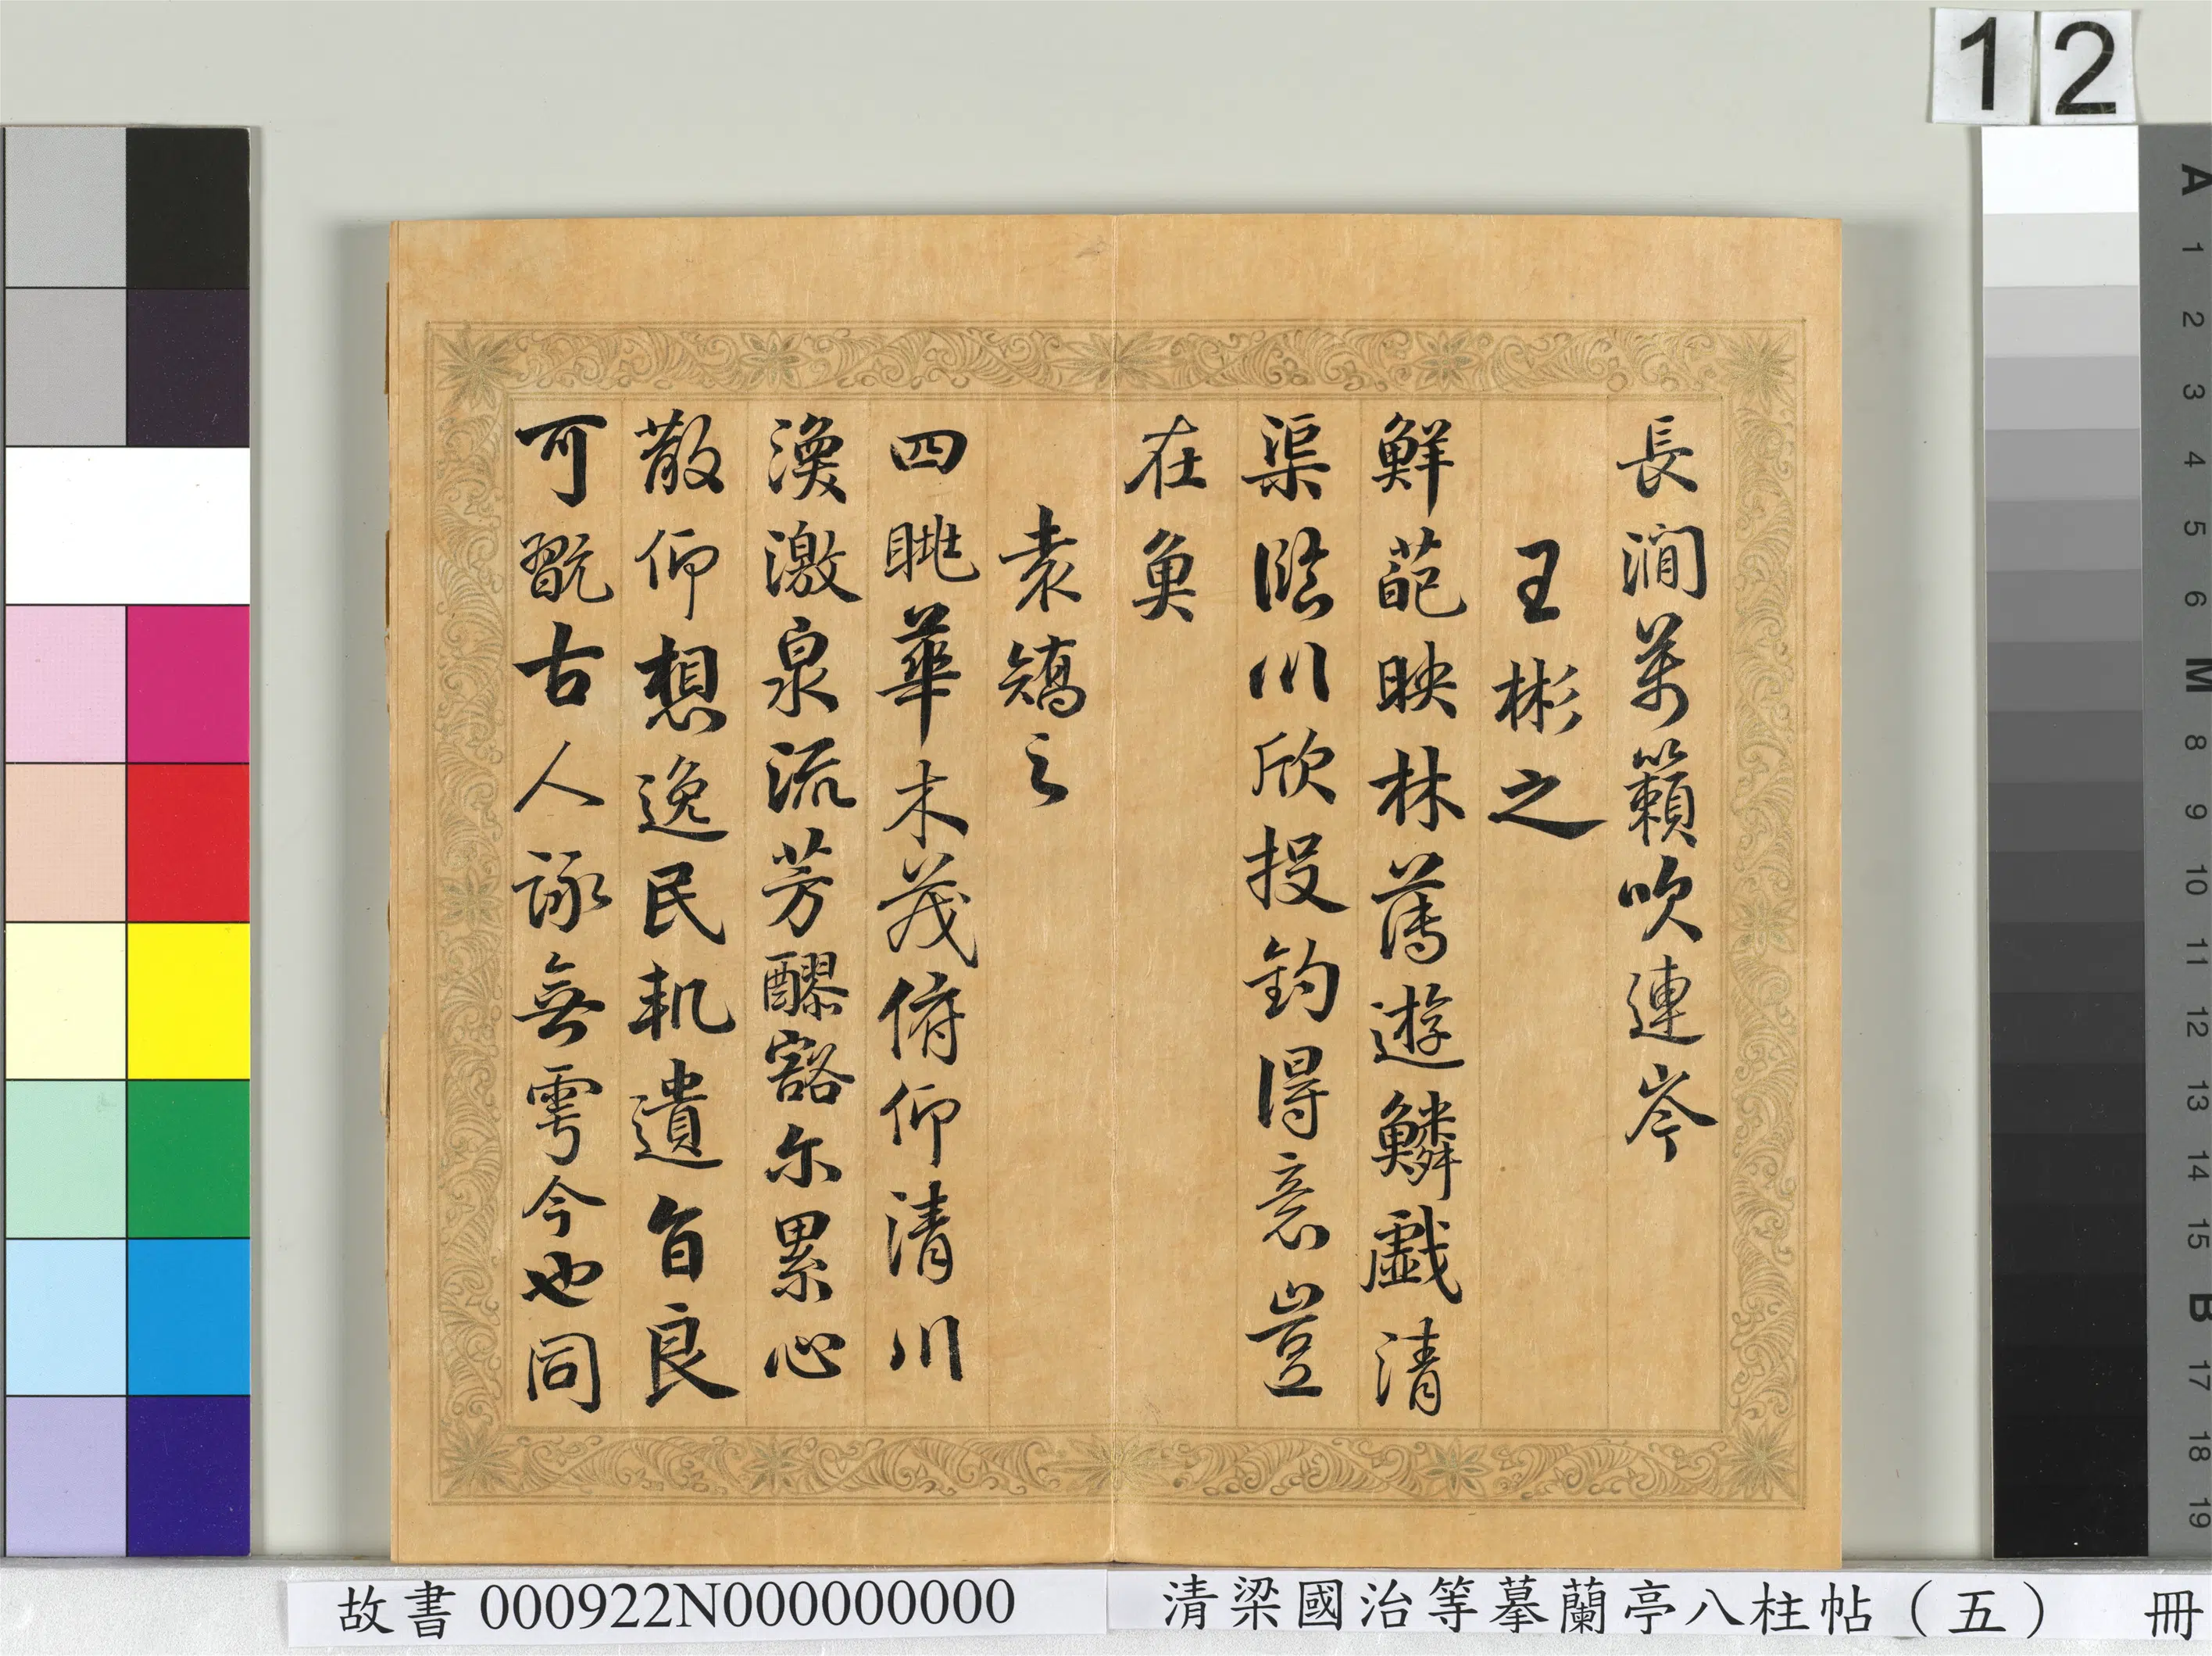 12
長澗萬籟吹連岑
王彬之
鮮葩映林薄遊鱗戲清
渠臨川欣投釣得意豈
在魚
袁矯之
四眺華木茂俯仰清川
渙激泉流芳醪豁尓累心
散仰想逸民軌遺旨良
可翫古人詠無雩今也同
A 1 2 3 4 5 6 M 8 9 10 11 12 13 14 15 B 17 18 19
故書 000922N000000000
清梁國治等摹蘭亭八柱帖（五） 冊